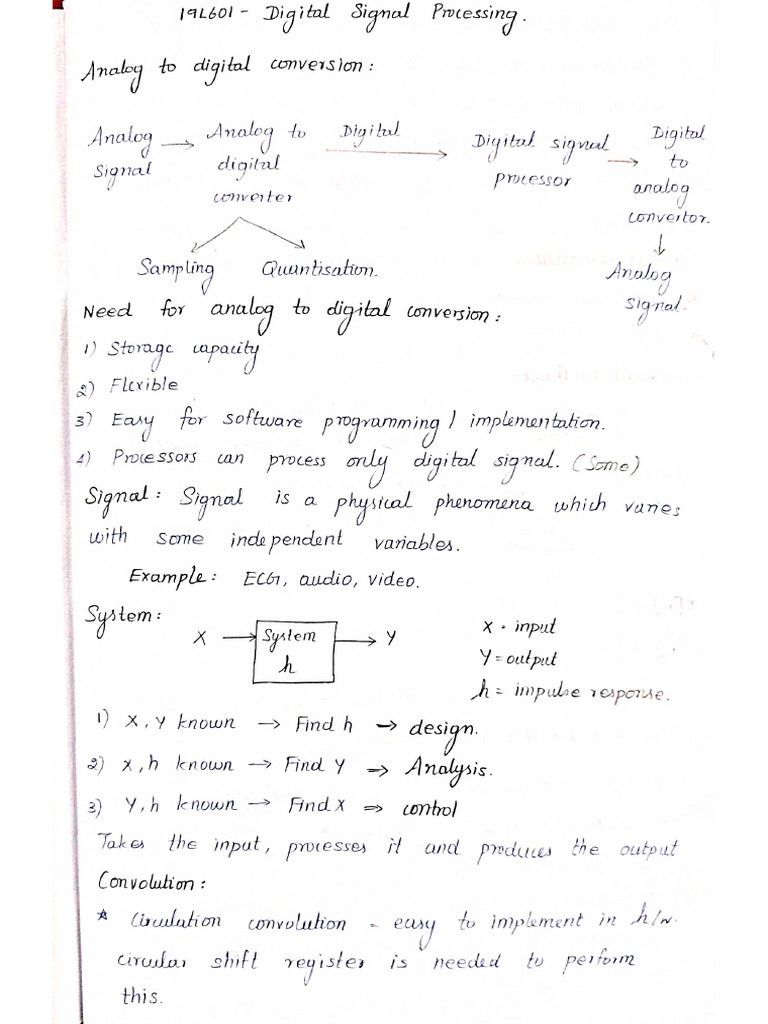 19L601 - Digital Signal Processing.
Analog to digital conversion:
Analog Signal → Analog to digital converter Digital → Digital signal processor → Digital to analog convertor.
↓
Sampling Quantisation. Analog signal.
Need for analog to digital conversion:
1) Storage capacity
2) Flexible
3) Easy for software programming / implementation.
4) Processors can process only digital signal. (Some)
Signal: Signal is a physical phenomena which varies
with some independent variables.
Example: ECG, audio, video.
System:
X → System h → Y
X - input
Y = output
h = impulse response.
1) X, Y known → Find h → design.
2) X, h known → Find Y ⇒ Analysis.
3) Y, h known → Find X ⇒ control
Takes the input, processes it and produces the output
Convolution:
* Circulation convolution - easy to implement in h/w.
circular shift register is needed to perform
this.